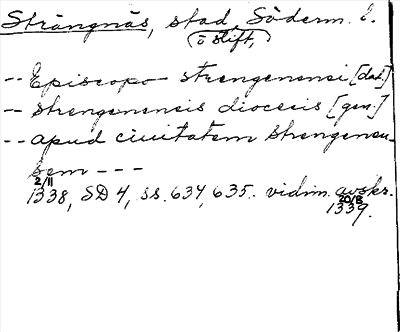 Strängnäs, stad, Söderm. l.
(ö stift,)
-- Episcopo strengenensi [dat.]
-- strengenensis diocesis [gen.]
-- apud ciuitatem strengenen-
sem ---
2/11
1338, SD 4, ss. 634, 635. vidim. avskr.
20/8
1339.